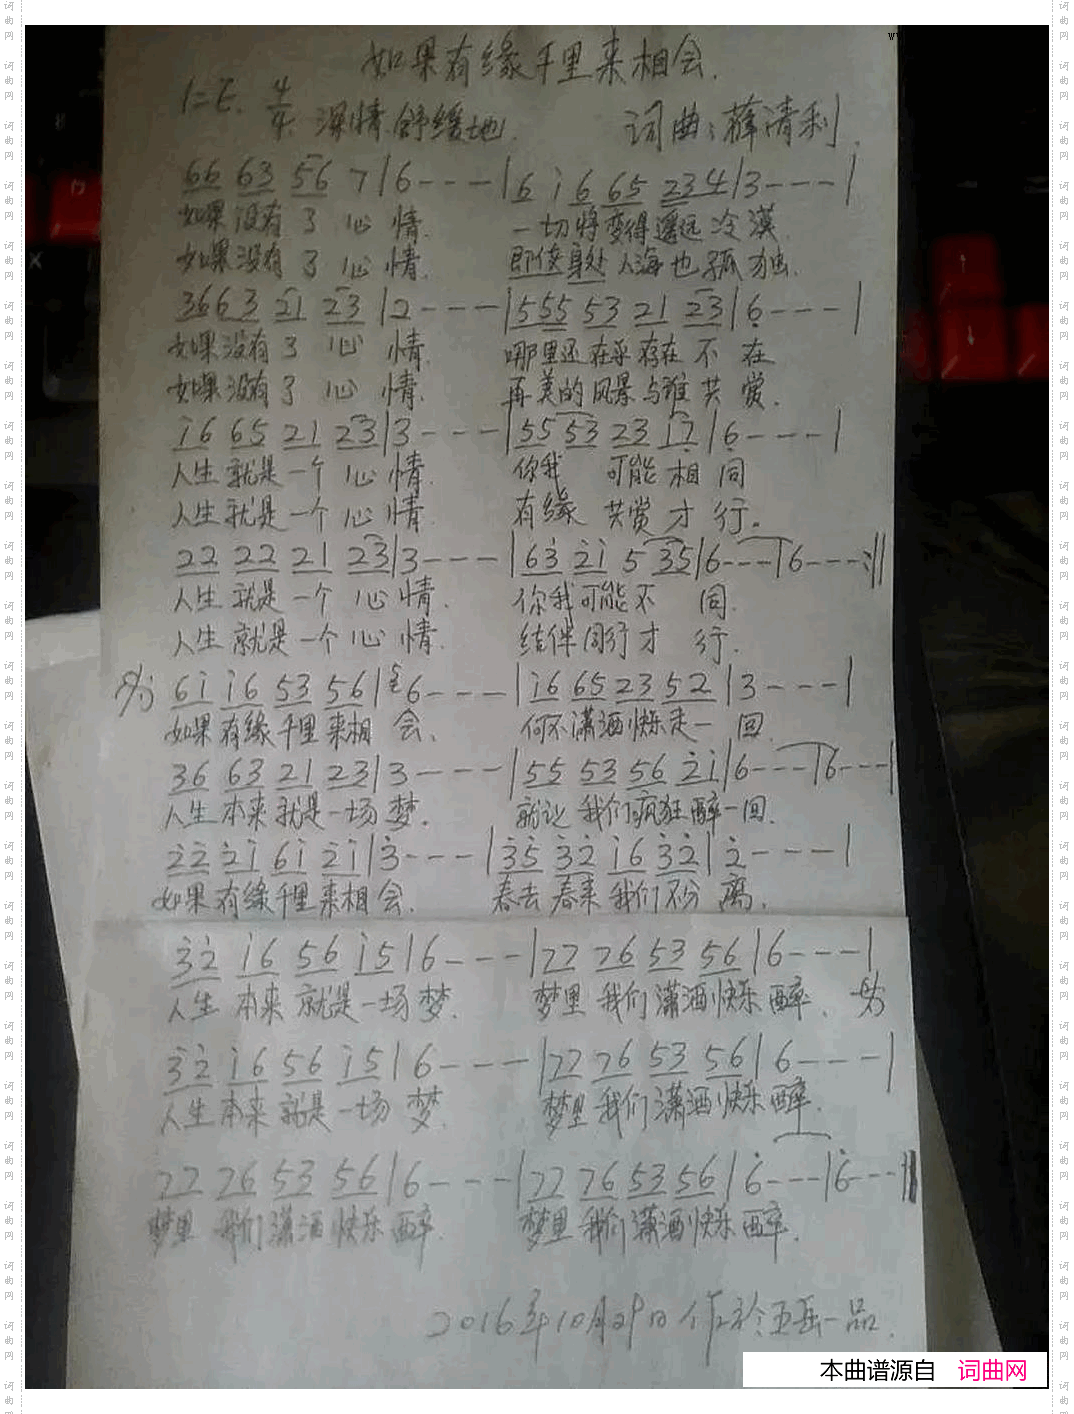 如果有缘千里来相会.
1=E. 4/4 深情.舒缓地. 词曲:薛清利.
66 63 56 7 | 6 - - - | 6 i 6 65 234 | 3 - - - |
如果没有了心情. 一切将变得遥远冷漠.
如果没有了心情. 即使身处人海也孤独.
366 3 21 23 | 2 - - - - | 555 53 21 23 | 6 - - - - |
如果没有了心情. 哪里还在乎存在不在
如果没有了心情. 再美的风景与谁共赏.
i6 65 21 23 | 3 - - - - | 55 53 23 17 | 6 - - - - |
人生就是一个心情. 你我可能相同
人生就是一个心情. 有缘共赏才行.
22 22 21 23 | 3 - - - - | 63 2i 5 35 | 6 - - - | 6 - - - :||
人生就是一个心情. 你我可能不同.
人生就是一个心情. 结伴同行才行.
6i i6 53 56 | 6 - - - - | i6 65 23 52 | 3 - - - - |
如果有缘千里来相会. 何不潇洒快乐走一回.
36 63 21 23 | 3 - - - - | 55 53 56 2i | 6 - - - | 6 - - - |
人生本来就是一场梦. 就让我们疯狂醉一回.
22 2i 6i 2i | 3 - - - - | 35 32 i6 32 | 2 - - - - |
如果有缘千里来相会. 春去春来我们不分离.
32 i6 56 i5 | 6 - - - - | 77 76 53 56 | 6 - - - - |
人生本来就是一场梦. 梦里我们潇洒快乐醉.
32 i6 56 i5 | 6 - - - - | 77 76 53 56 | 6 - - - - |
人生本来就是一场梦. 梦里我们潇洒快乐醉.
77 76 53 56 | 6 - - - - | 77 76 53 56 | 6 - - - | 6 - - - ||
梦里我们潇洒快乐醉. 梦里我们潇洒快乐醉.
2016年10月29日作於五岳一品.
本曲谱源自 词曲网